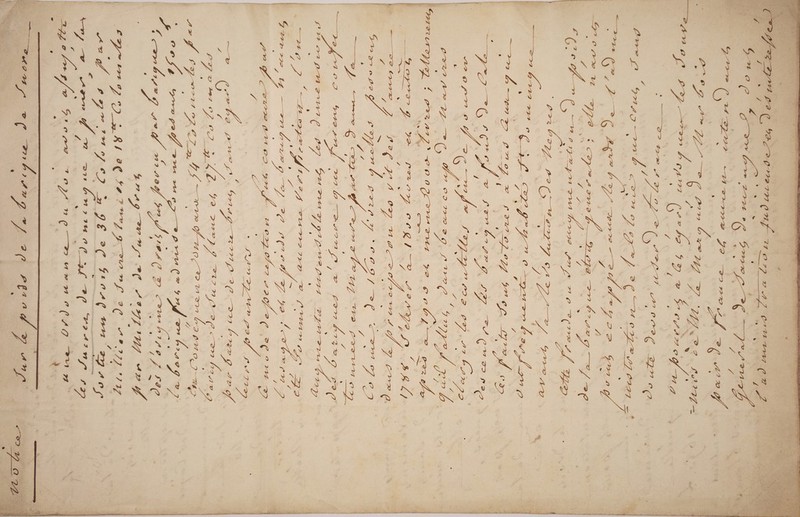 Notice
Sur le poids de la barique de Sucre
une Ordonnance du Roi avoit assujetti
les Sucres de St. Domingue à payer à leur
Sortie un droit de 36 tt Coloniales par
Millier de Sucre blanc et de 18 tt Coloniales
par Millier de Sucre brut.
Dès l'origine le droit fut perçu par barique;
la barique fut admise comme pesant 1500 tt
En Conséquence on paya 54 tt Coloniales par
barique de Sucre blanc et 27 tt Coloniales
par barique de Sucre brut, sans égard à
leurs pesanteurs.
Ce mode de perception fut consacré par
l'usage; et le poids de la barique n'aiant
été soumis à aucune Vérification, l'on
augmenta insensiblement les dimensions
des bariques à Sucre qui furent
en Majeure partie dans la
Colonie de 1600 livres qu'elles pesoient
dans le principe on les vit dès l'année
1788 S'élever à 1800 livres et bientôt
après à 1900 et même 2000 livres; tellement
qu'il fallut, dans beaucoup de Navires
élargir les écoutilles afin de pouvoir
descendre les bariques à fonds de Cale
Ces faits sont Notoires à tous Ceux qui
ont fréquenté ou habité St. Domingue
avant la des Negres.
Cette fraude ou Sur augmentation du poids
de la barique étoit générale; elle n'avoit
point échappé aux regards de l'admi-
nistration de la Colonie qui crut, sans
doute devoir user de tolérance:
On pourroit à cet égard invoquer les Souve-
-nirs de M. le Marquis de Marbois
pair de France et ancien intendant
Général de Saint Domingue, dont
l'administration judicieuse et desinteressée